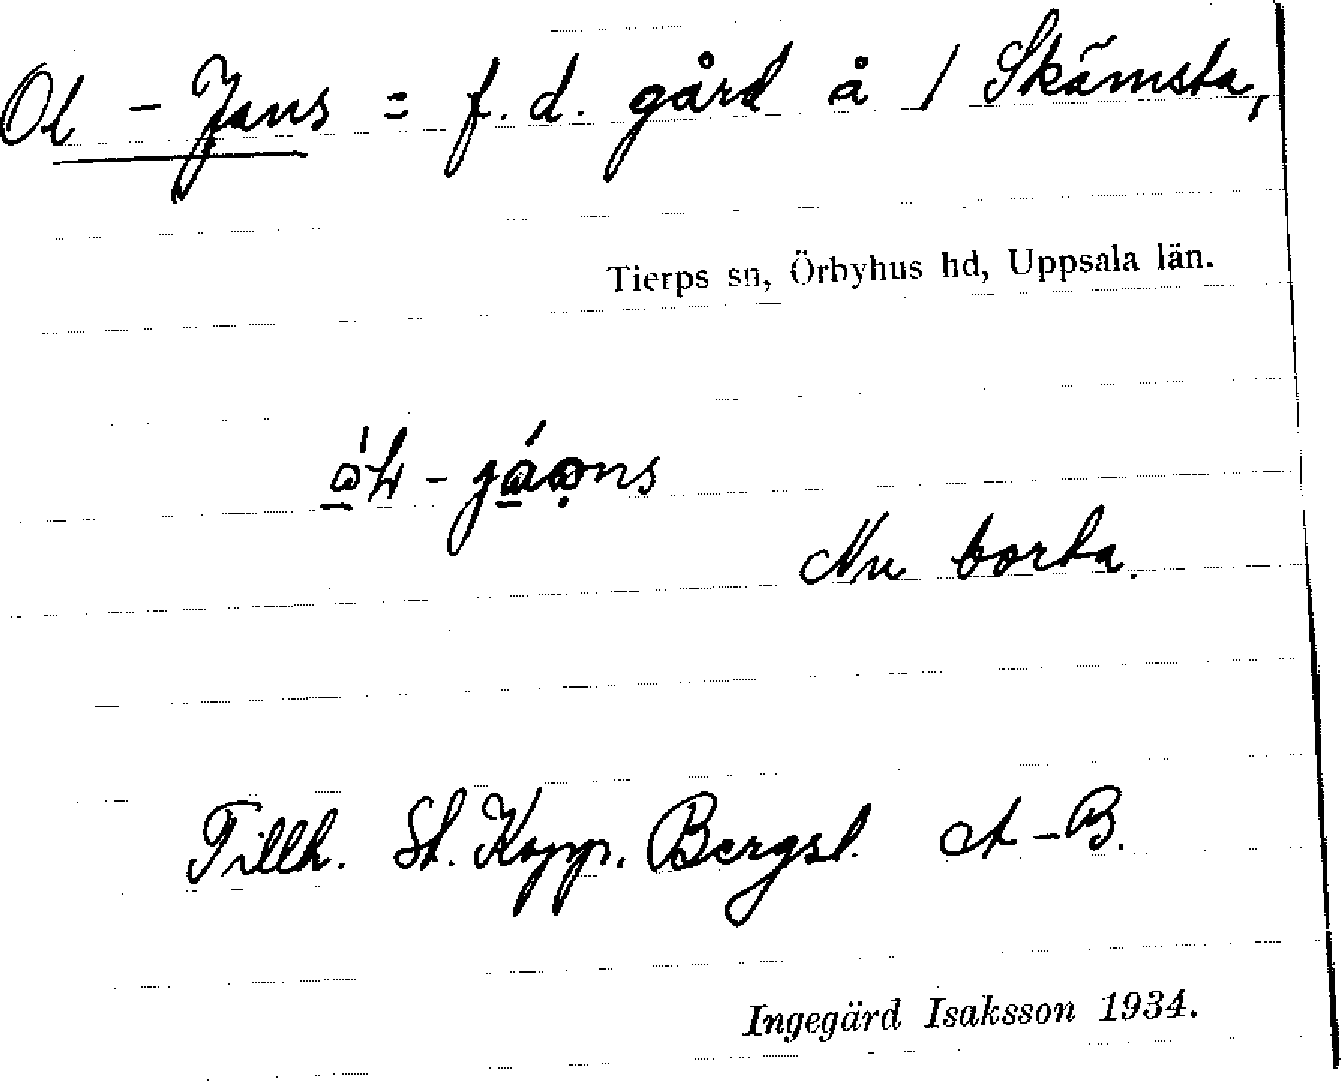 Ol - Jans = f. d. gård å 1 Skämsta,
Tierps sn, Örbyhus hd, Uppsala län.
Nu borta.
Tillh. St. Kopp. Bergsl. A-B.
Ingegärd Isaksson 1934.